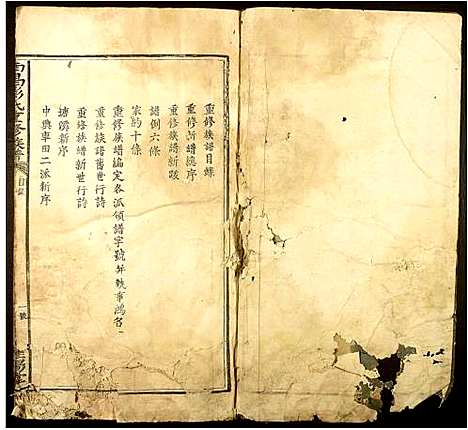 重修族譜目錄
重修族譜總序
重修族譜新跋
譜例六條
家約十條
重修族譜編定各派領譜字號并執事鴻名
重修族譜舊世行詩
重修族譜新世行詩
塘灣新序
中興車田二派新序